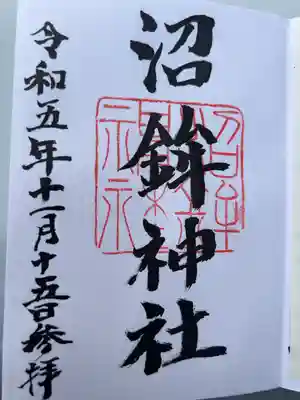 沼鉾神社
令和五年十一月十五日参拝